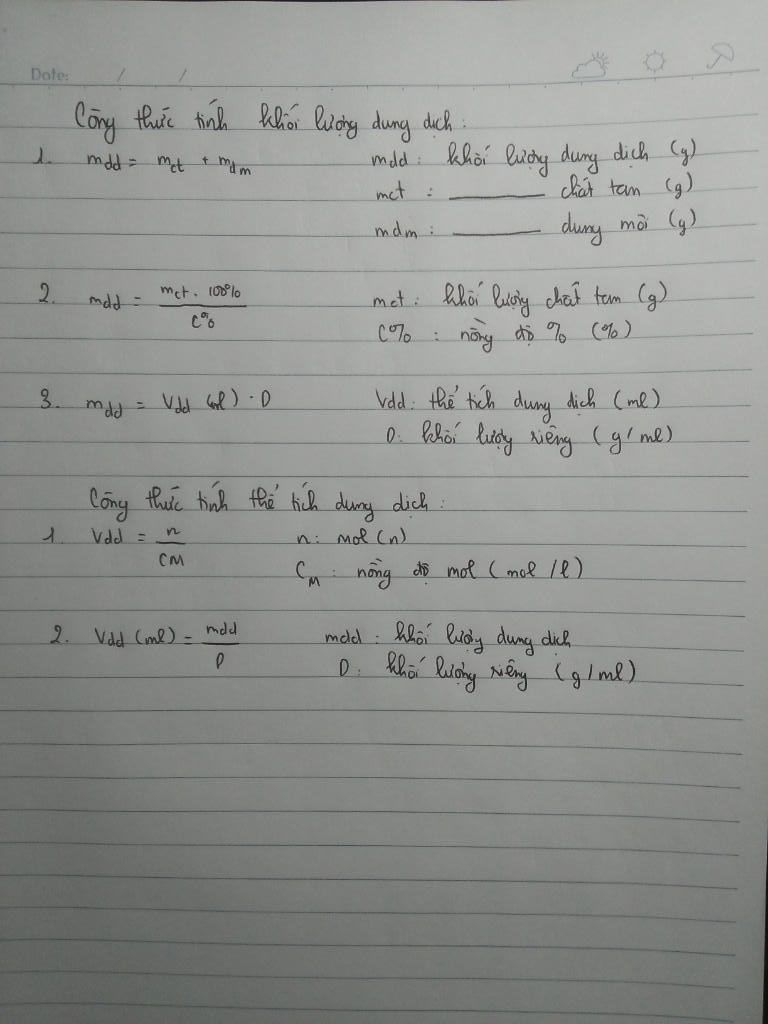 Date: / /
Công thức tính khối lượng dung dịch :
1. mdd = mct + mdm mdd : khối lượng dung dịch (g)
mct : ——— chất tan (g)
mdm : ——— dung môi (g)
2. mdd = mct . 100% / C% mct : khối lượng chất tan (g)
C% : nồng độ % (%)
3. mdd = Vdd (ml) . D Vdd : thể tích dung dịch (ml)
D : khối lượng riêng (g/ml)
Công thức tính thể tích dung dịch :
1. Vdd = n / CM n : mol (n)
CM : nồng độ mol (mol/l)
2. Vdd (ml) = mdd / D mdd : khối lượng dung dịch
D : khối lượng riêng (g/ml)